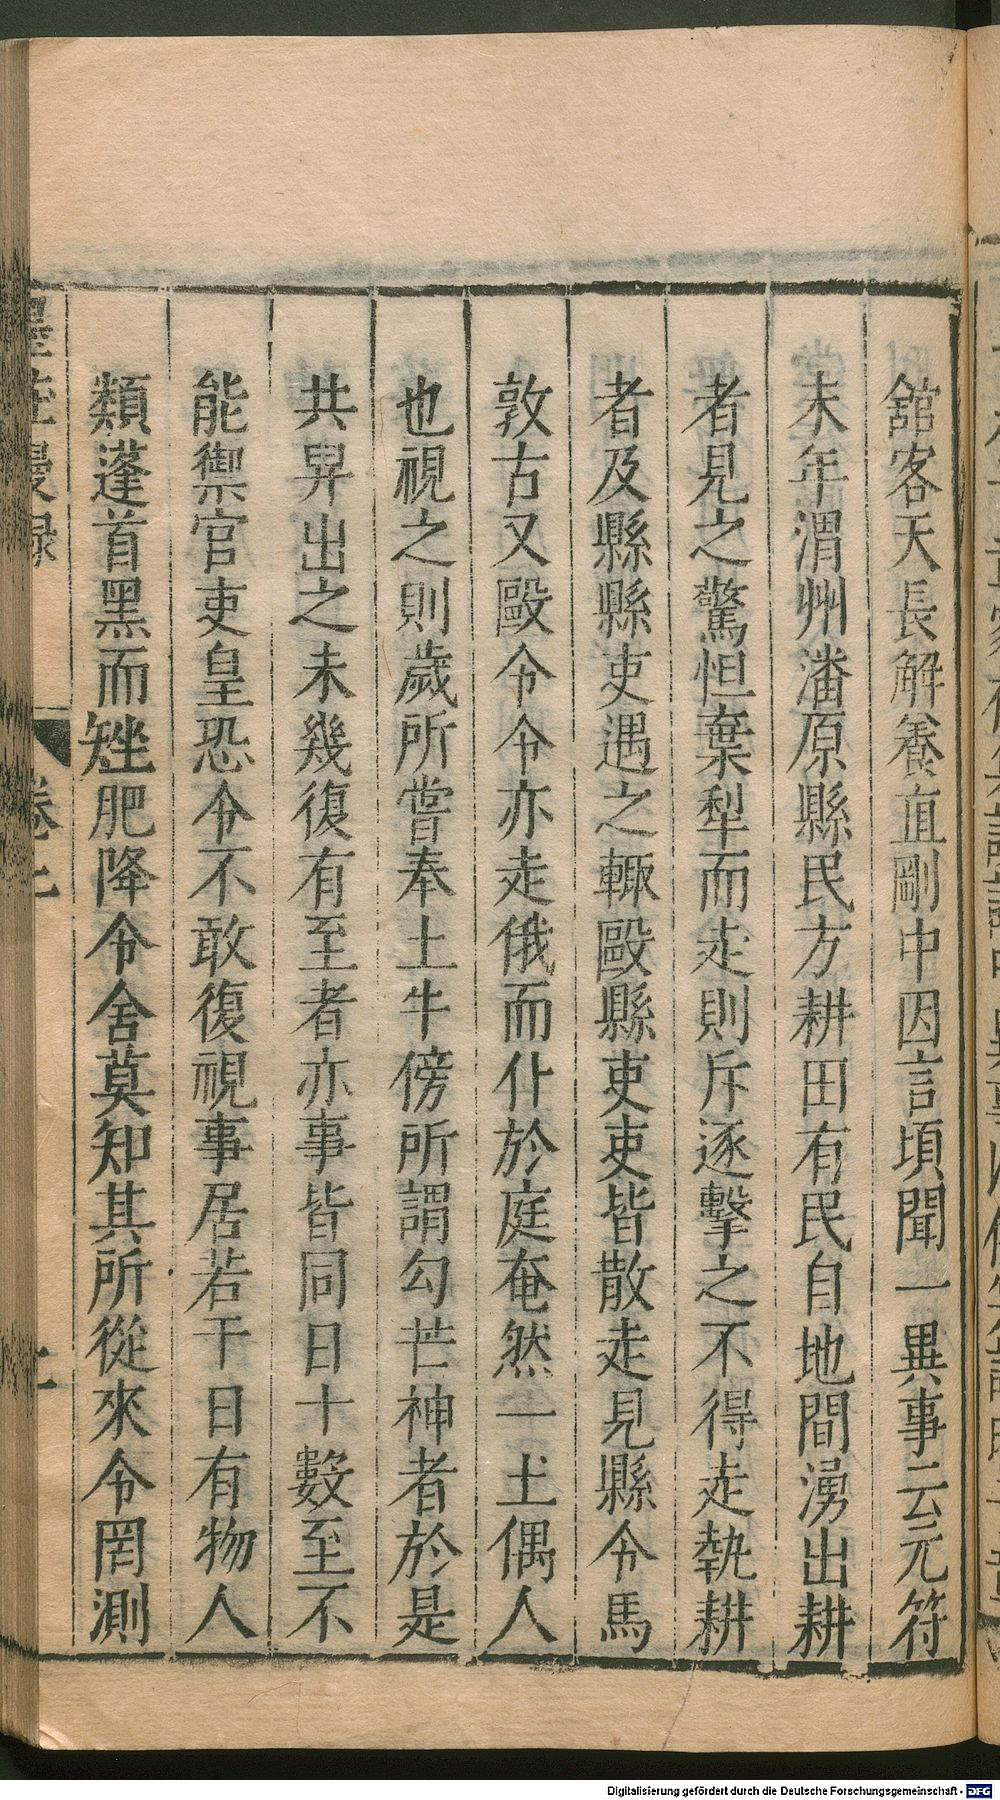 舘客天長解養直剛中因言頃聞一異事云元符
末年渭州潘原縣民方耕田有民自地間湧出耕
者見之驚怛棄犁而走則斥逐擊之不得走執耕
者及縣縣吏遇之輙毆縣吏吏皆散走見縣令馬
敦古又毆令令亦走俄而仆於庭奄然一土偶人
也視之則歲所嘗奉土牛傍所謂勾芒神者於是
共舁出之未幾復有至者亦事皆同日十數至不
能禦官吏皇恐令不敢復視事居若干日有物人
類蓬首黑而矬肥降令舍莫知其所從來令罔測
墨莊漫録
Digitalisierung gefördert durch die Deutsche Forschungsgemeinschaft - DFG